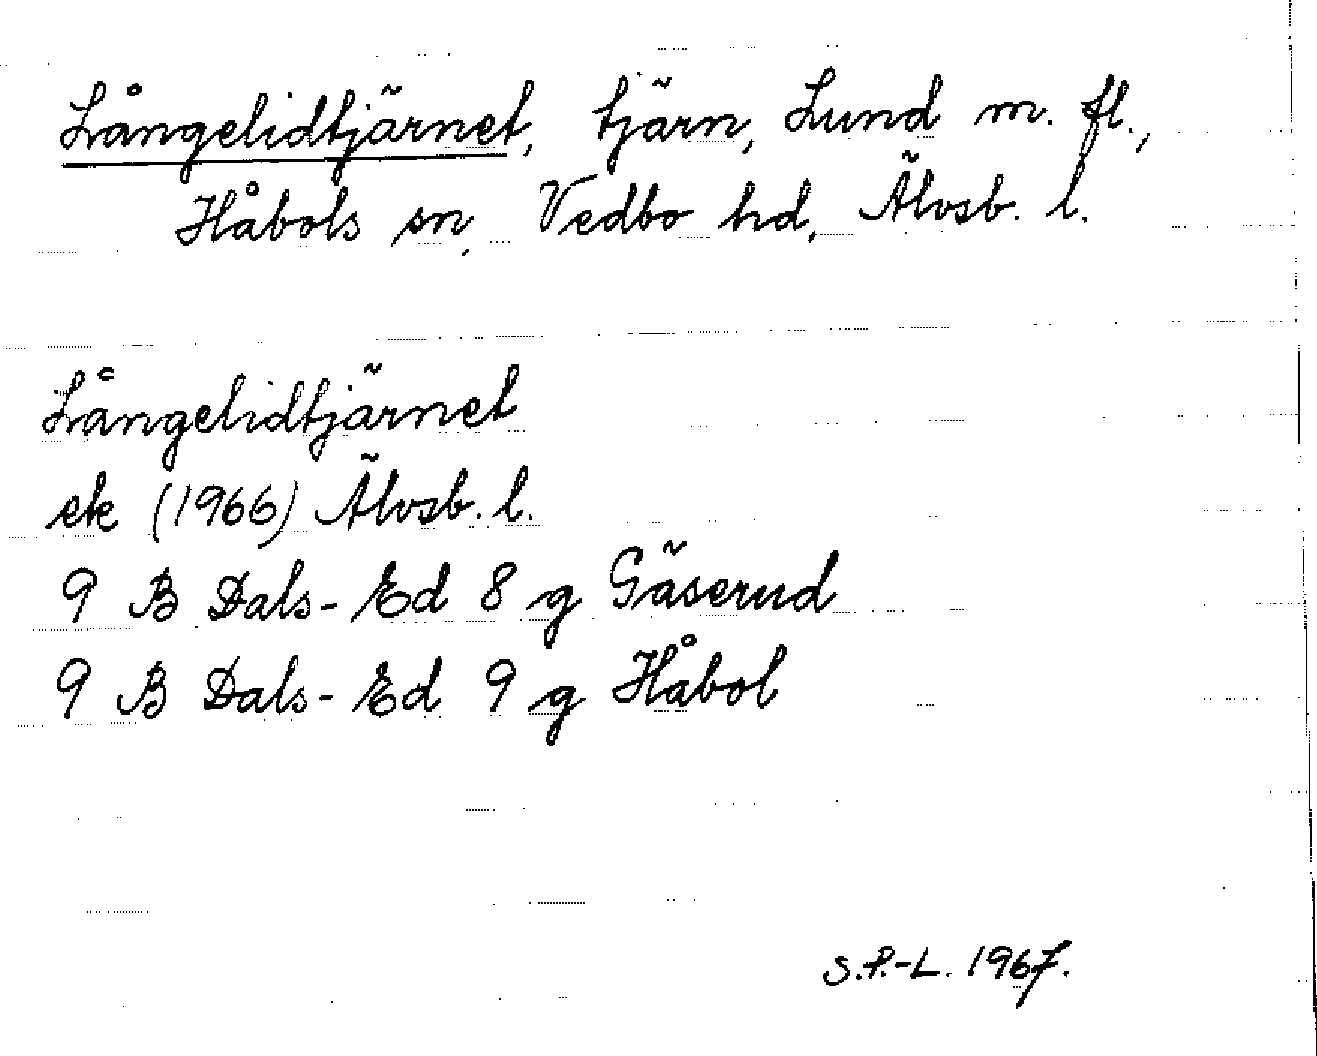 Långelidtjärnet, tjärn, Lund m. fl.,
Håbols sn, Vedbo hd, Älvsb. l.
Långelidtjärnet
ek (1966) Älvsb. l.
9 B Dals-Ed 8 g Gäserud
9 B Dals-Ed 9 g Håbol
S.P.-L. 1967.